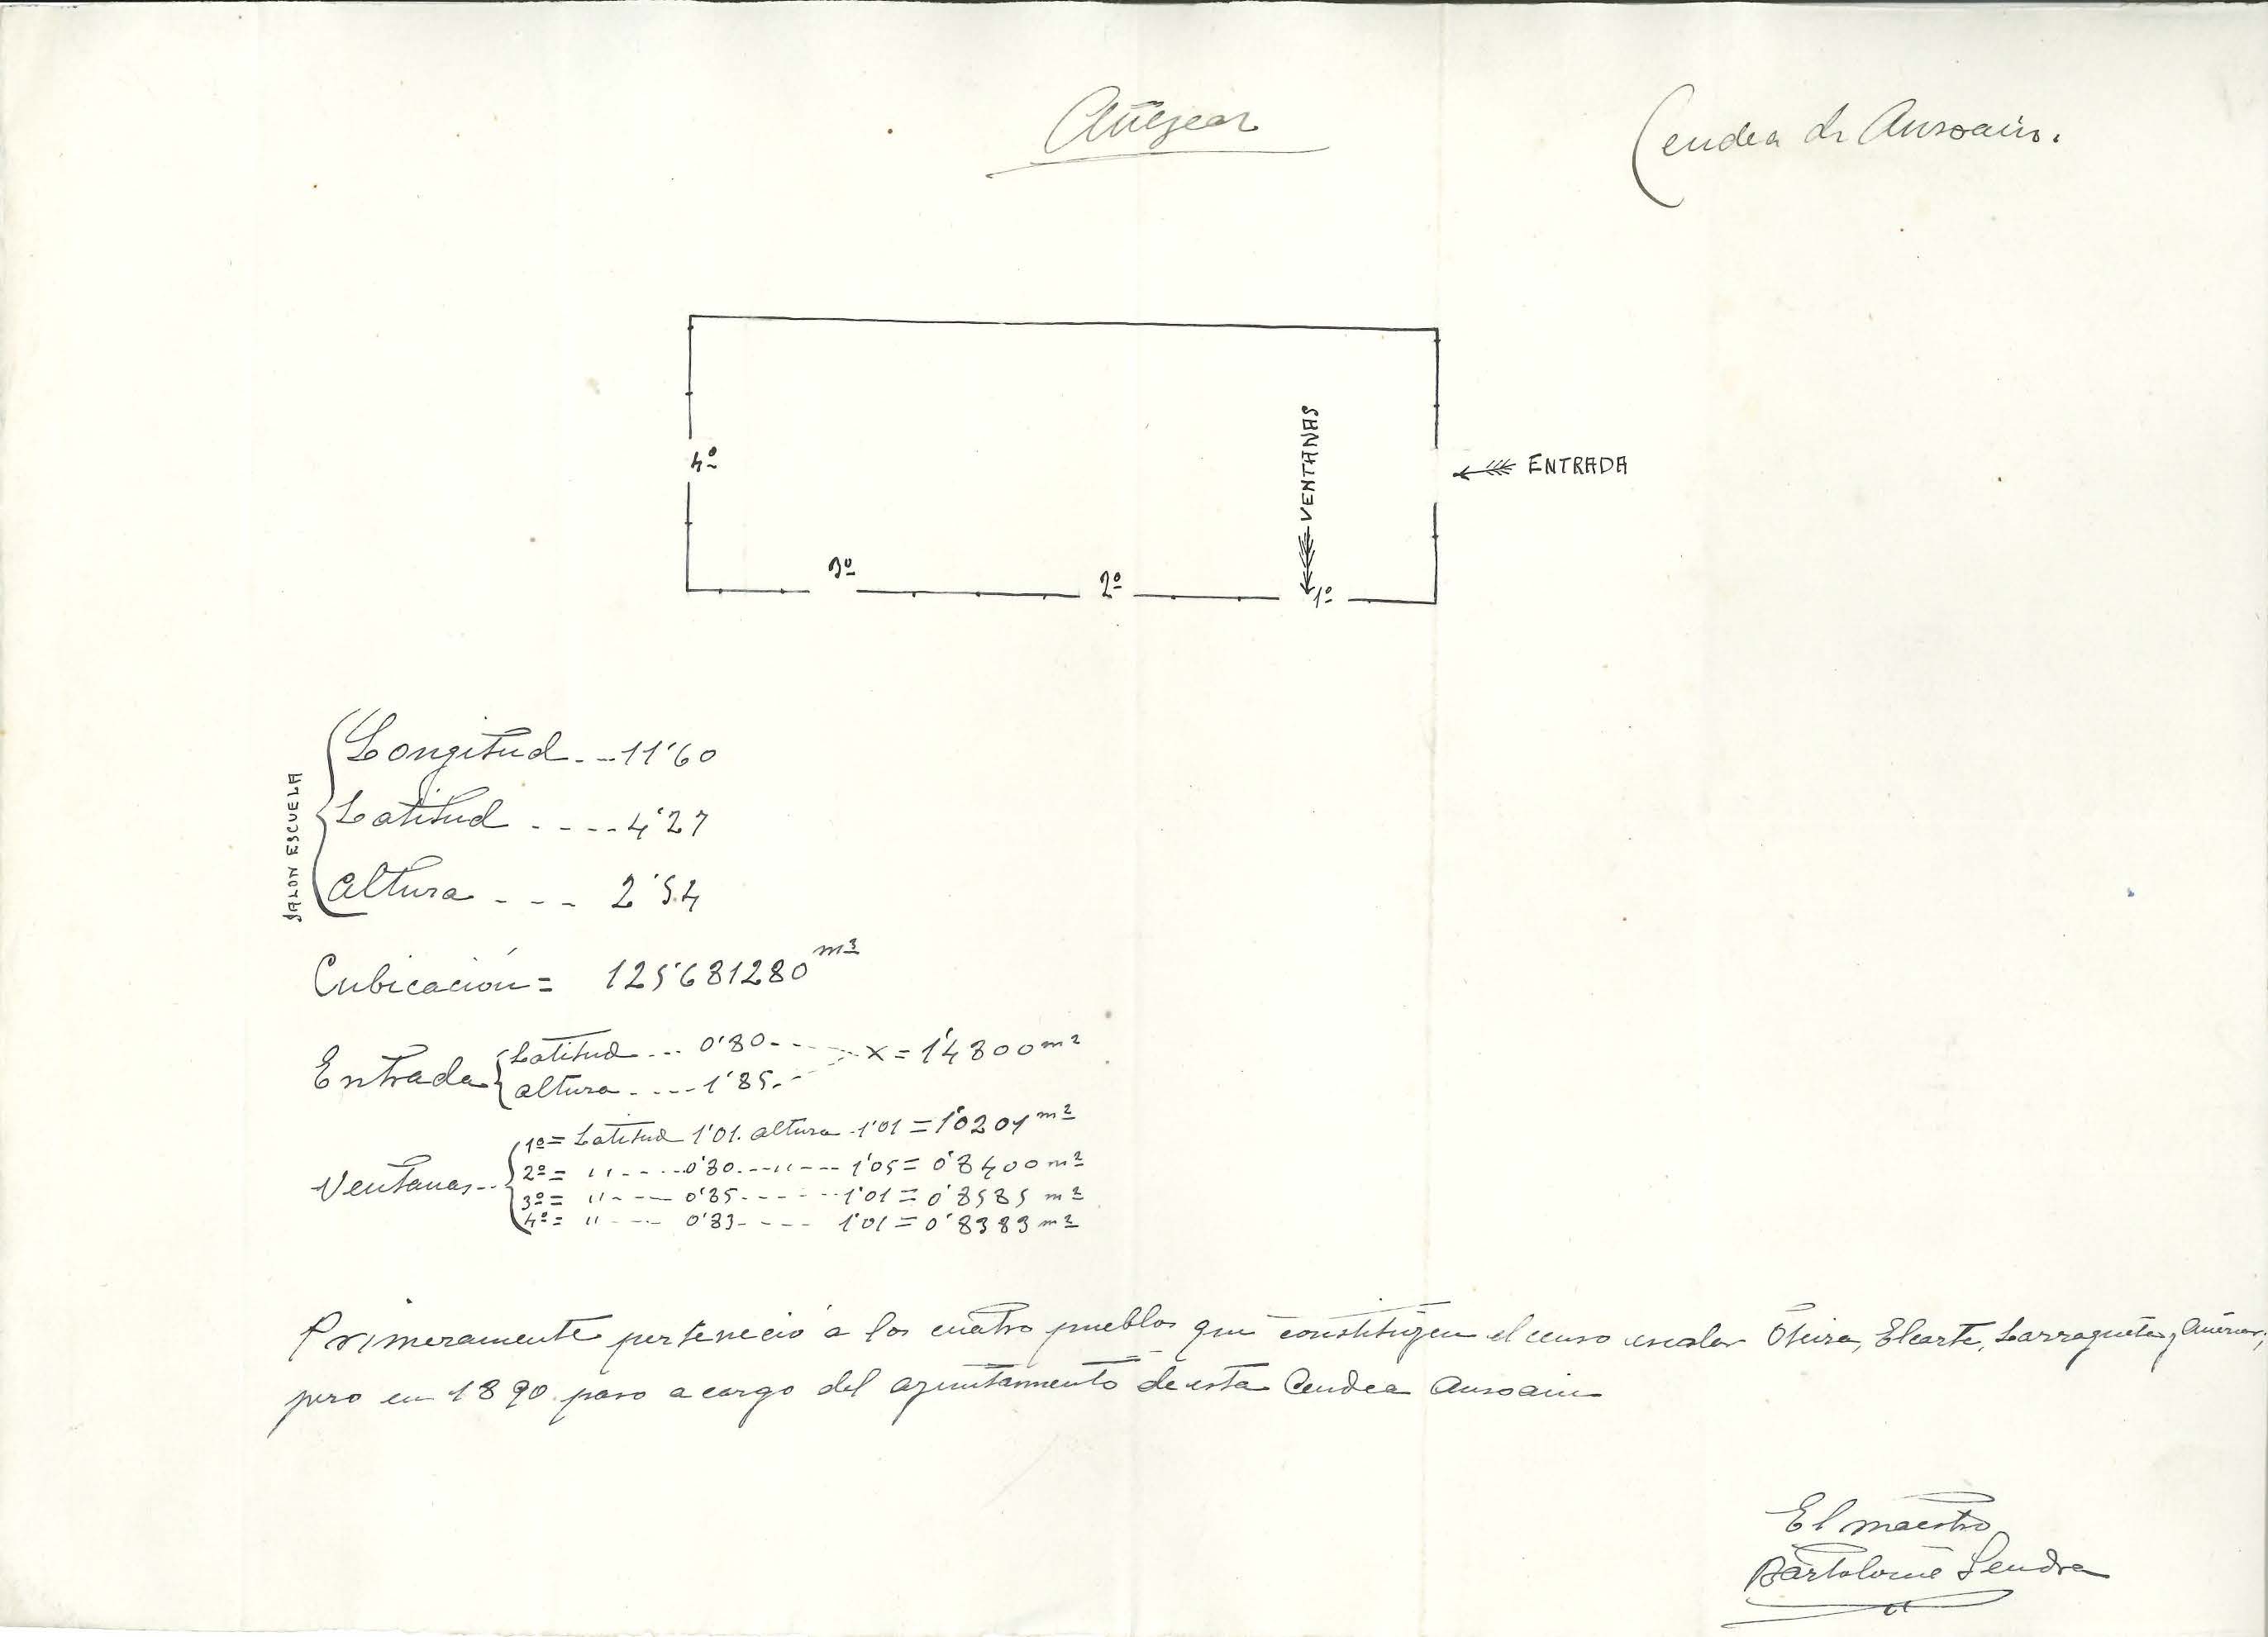 Añezcar
Cendea de Ansoain.
VENTANAS
ENTRADA
4º
3º
2º
1º
SALON ESCUELA
Longitud - - - 11'60
Latitud - - - - 4'27
Altura - - - 2'54
Cubicación = 125'681280 m3
Entrada
Latitud - - - 0'80 - - - x = 1'4800 m2
altura - - - - 1'85. -
Ventanas - -
1º = Latitud 1'01. altura - 1'01 = 1'0201 m2
2º = " - - - - 0'80 - - - " - - - 1'05 = 0'8400 m2
3º = " - - - - 0'85 - - - - - - 1'01 = 0'8585 m2
4º = " - - - - 0'83 - - - - 1'01 = 0'8383 m2
Primeramente perteneció a los cuatro pueblos que constituyen el censo escolar Oteiza, Elcarte, Larragueta y Añezcar;
pero en 1890 paso a cargo del ayuntamiento de esta Cendea Ansoain
El maestro
Bartolomé Sendra